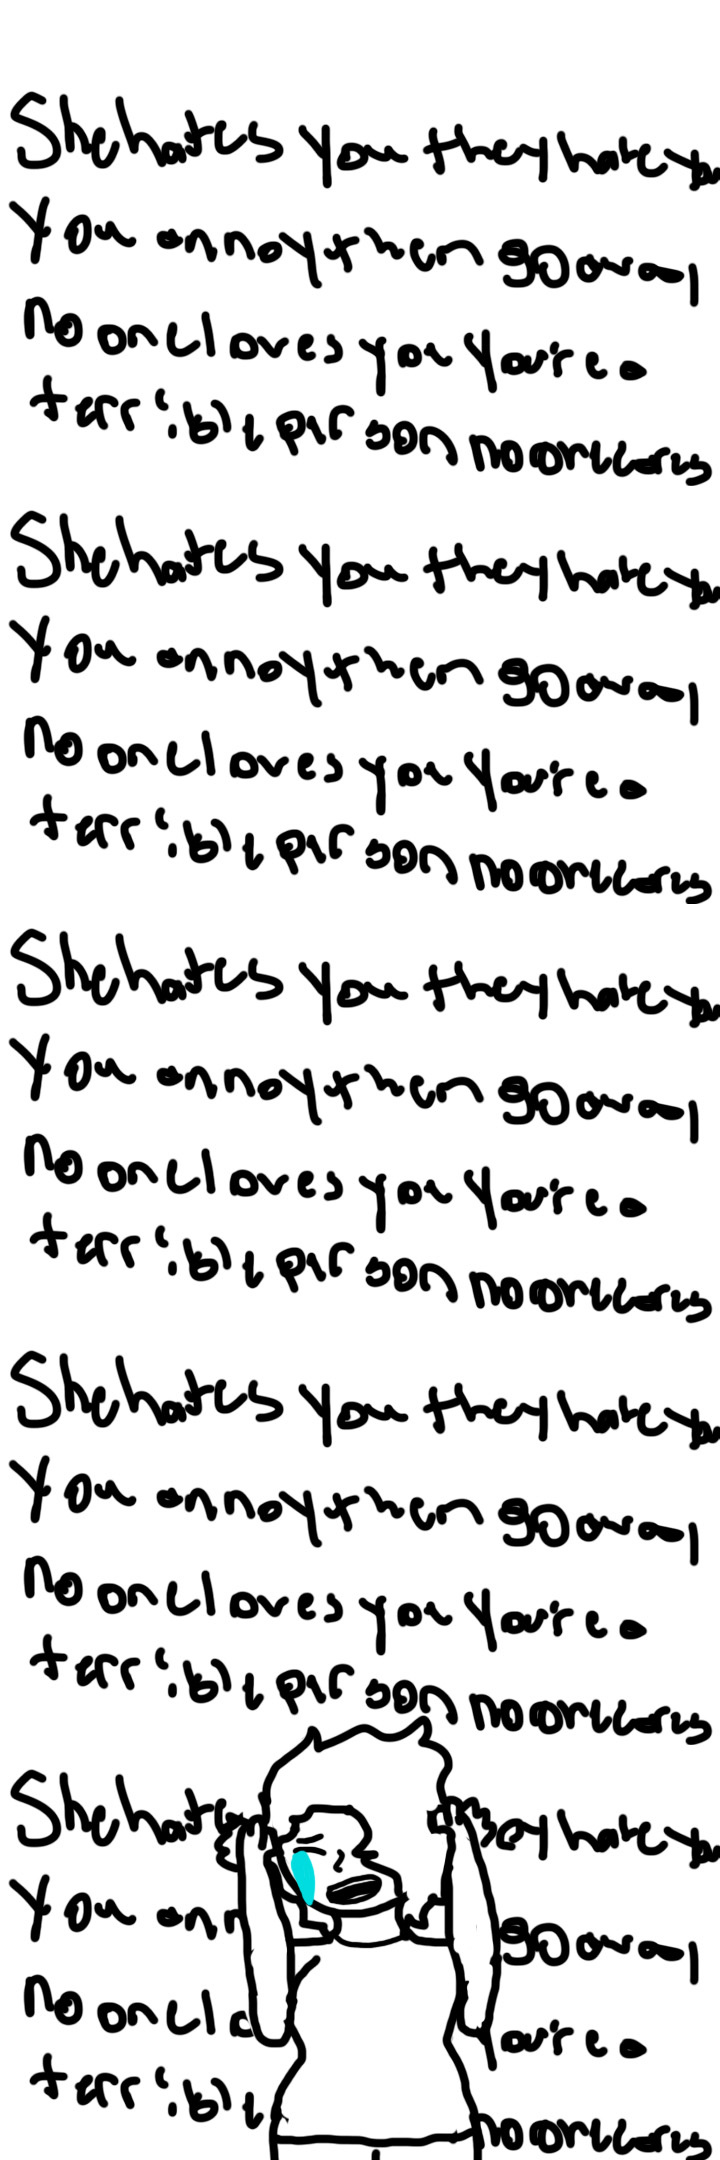 She hates you they hate you
You annoy them go away
No one loves you You're a
terrible person no one cares
She hates you they hate you
You annoy them go away
No one loves you You're a
terrible person no one cares
She hates you they hate you
You annoy them go away
No one loves you You're a
terrible person no one cares
She hates you they hate you
You annoy them go away
No one loves you You're a
terrible person no one cares
She hate ey hate you
You ann go away
No one lo You're a
terrible no one cares